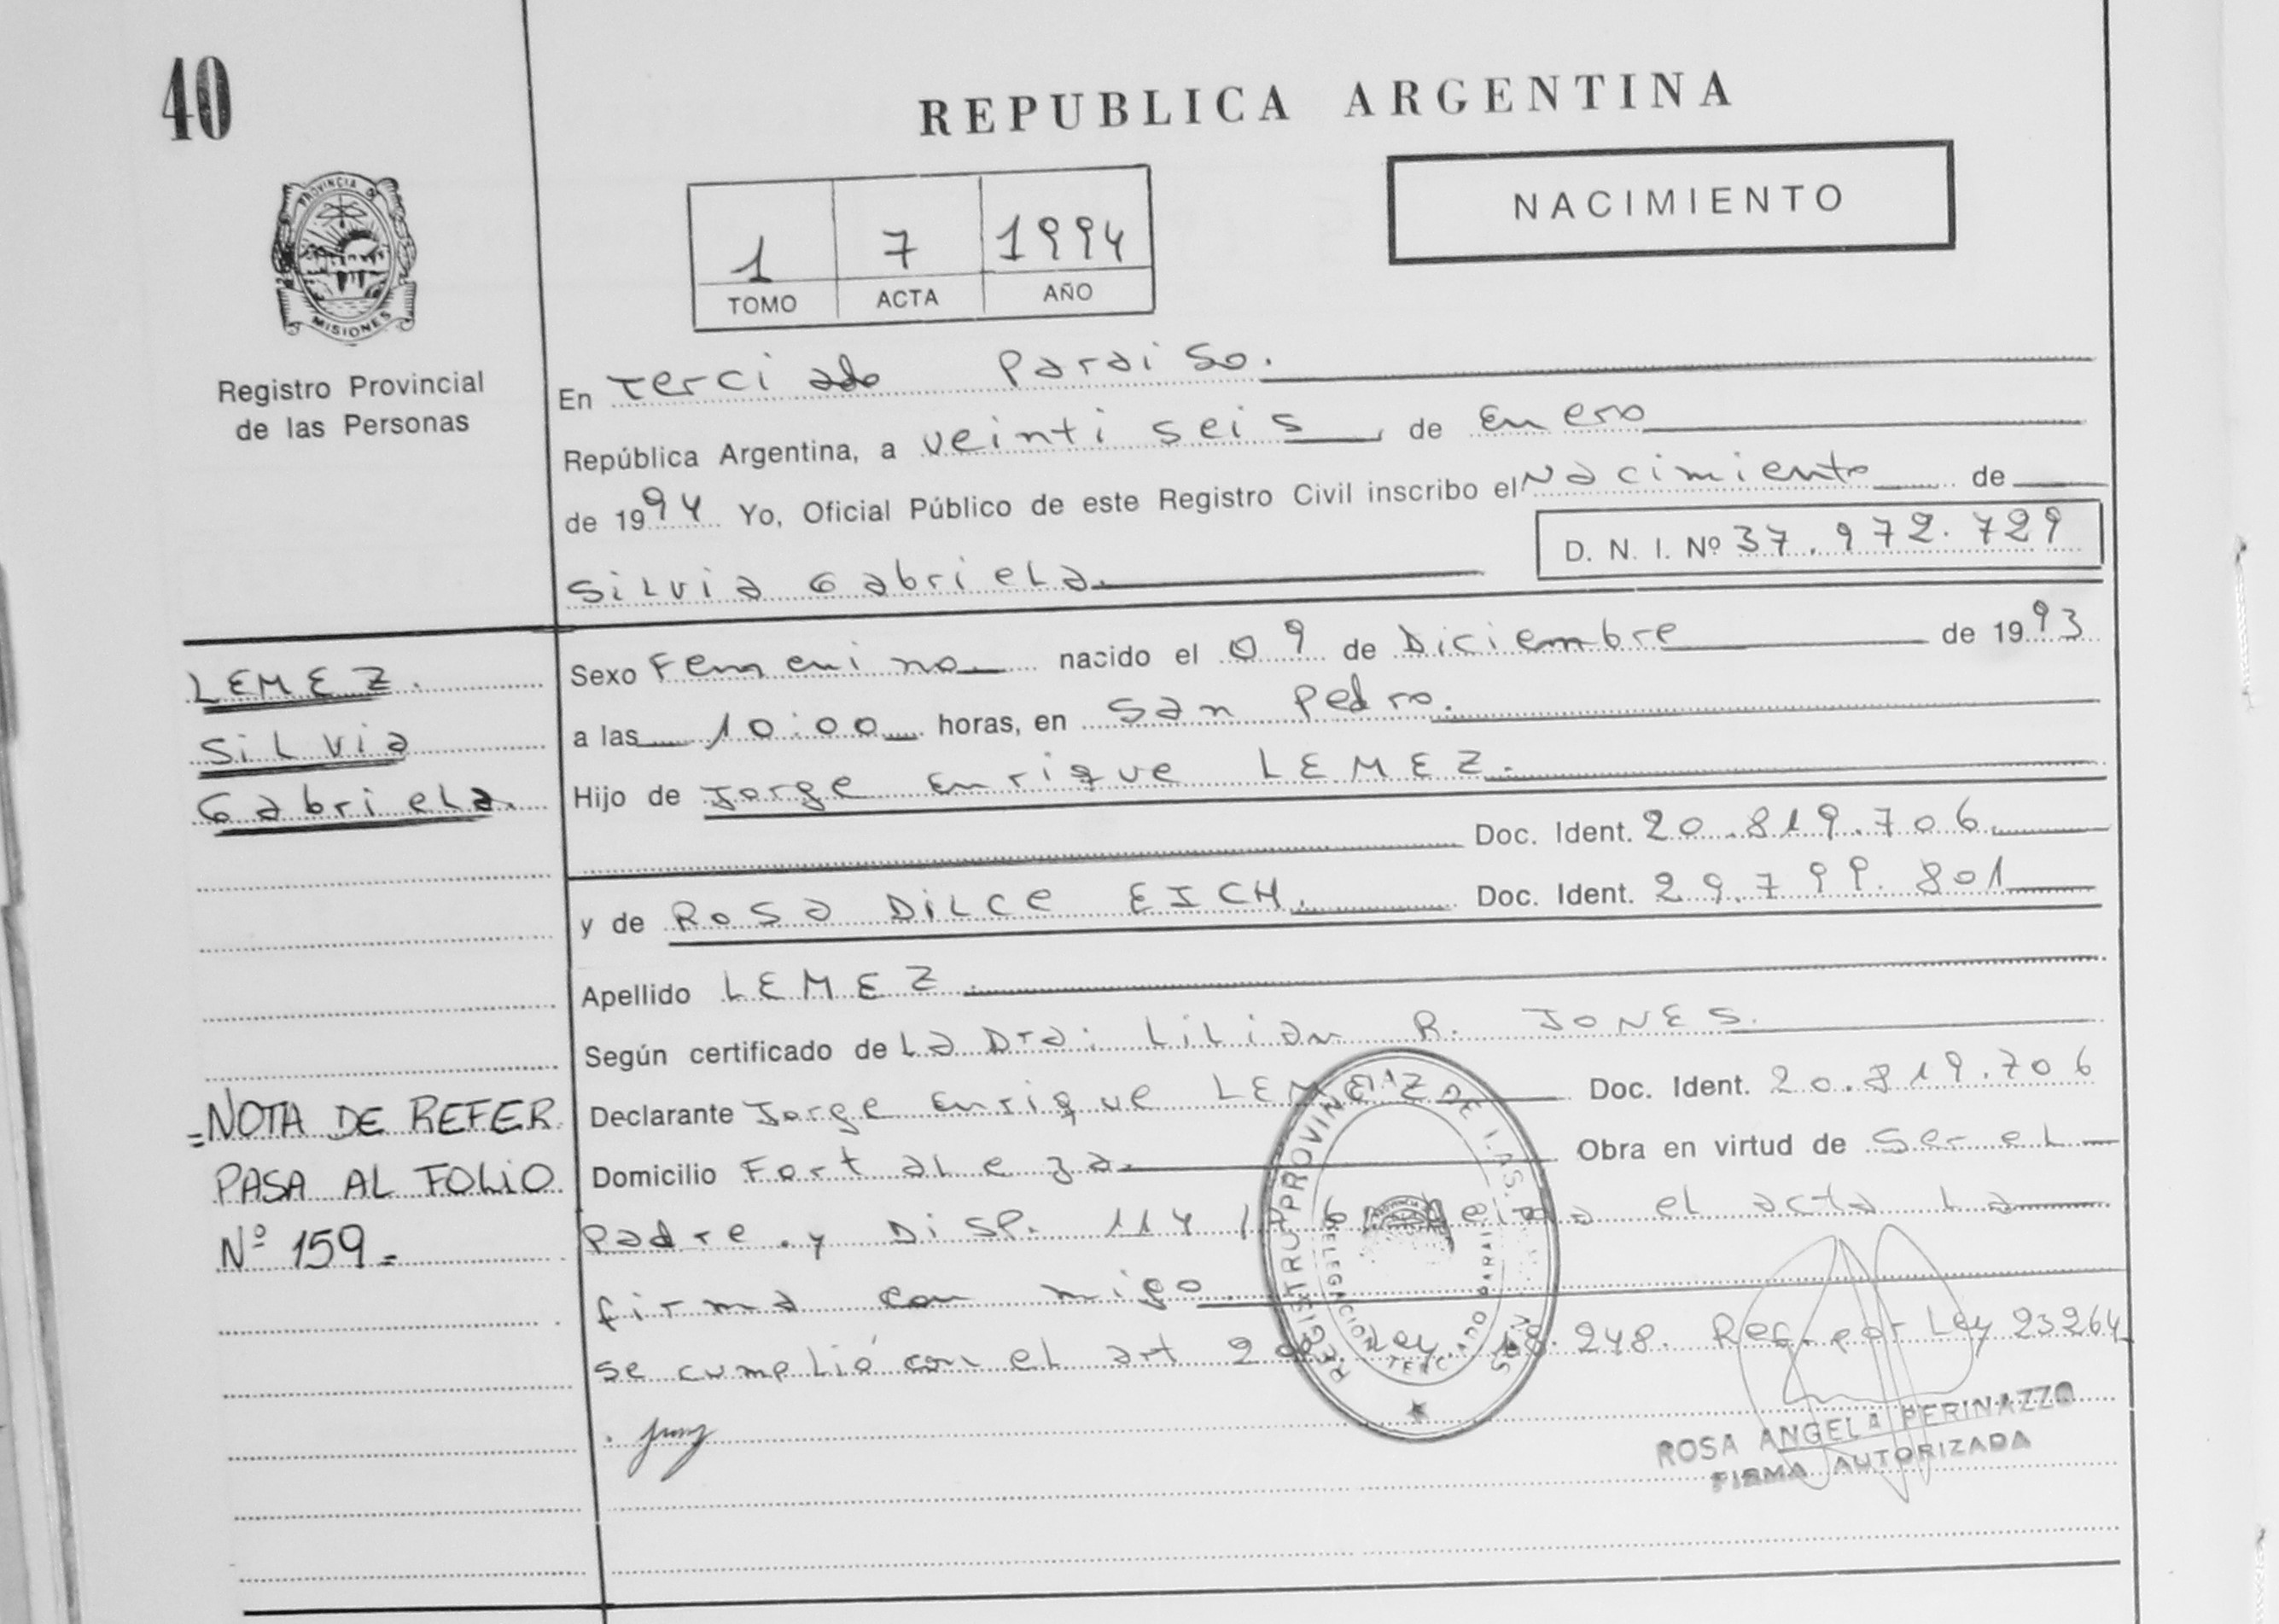 40
REPUBLICA ARGENTINA
NACIMIENTO
1 7 1994
TOMO ACTA AÑO
PROVINCIA DE
MISIONES
Registro Provincial
de las Personas
En Terciado Paraiso.
República Argentina, a veinti seis, de Enero
de 1994 Yo, Oficial Público de este Registro Civil inscribo el Nacimiento de
D. N. I. Nº 37.972.729
Silvia Gabriela.
LEMEZ.
Silvia
Gabriela.
Sexo Femenino nacido el 09 de Diciembre de 1993
a las 10:00 horas, en San Pedro.
Hijo de Jorge Enrique LEMEZ.
Doc. Ident. 20.819.706
y de ROSA DILCE EICH. Doc. Ident. 29.799.801
Apellido LEMEZ.
Según certificado de La Dra: Lilian R. JONES.
Declarante Jorge Enrique LEMEZ Doc. Ident. 20.819.706
Domicilio Fortaleza. Obra en virtud de Ser el
Padre. y DiSP. 114 el acta La
firma con migo.
se cumplió con el art 2 Ley 18.248. Ref. por Ley 23264
=NOTA DE REFER.
PASA AL FOLiO
Nº 159=
REGISTRO PROVINCIAL DE LAS
DELEGACION TERCIADO PARAISO
ROSA ANGELA PERINAZZO
FIRMA AUTORIZADA